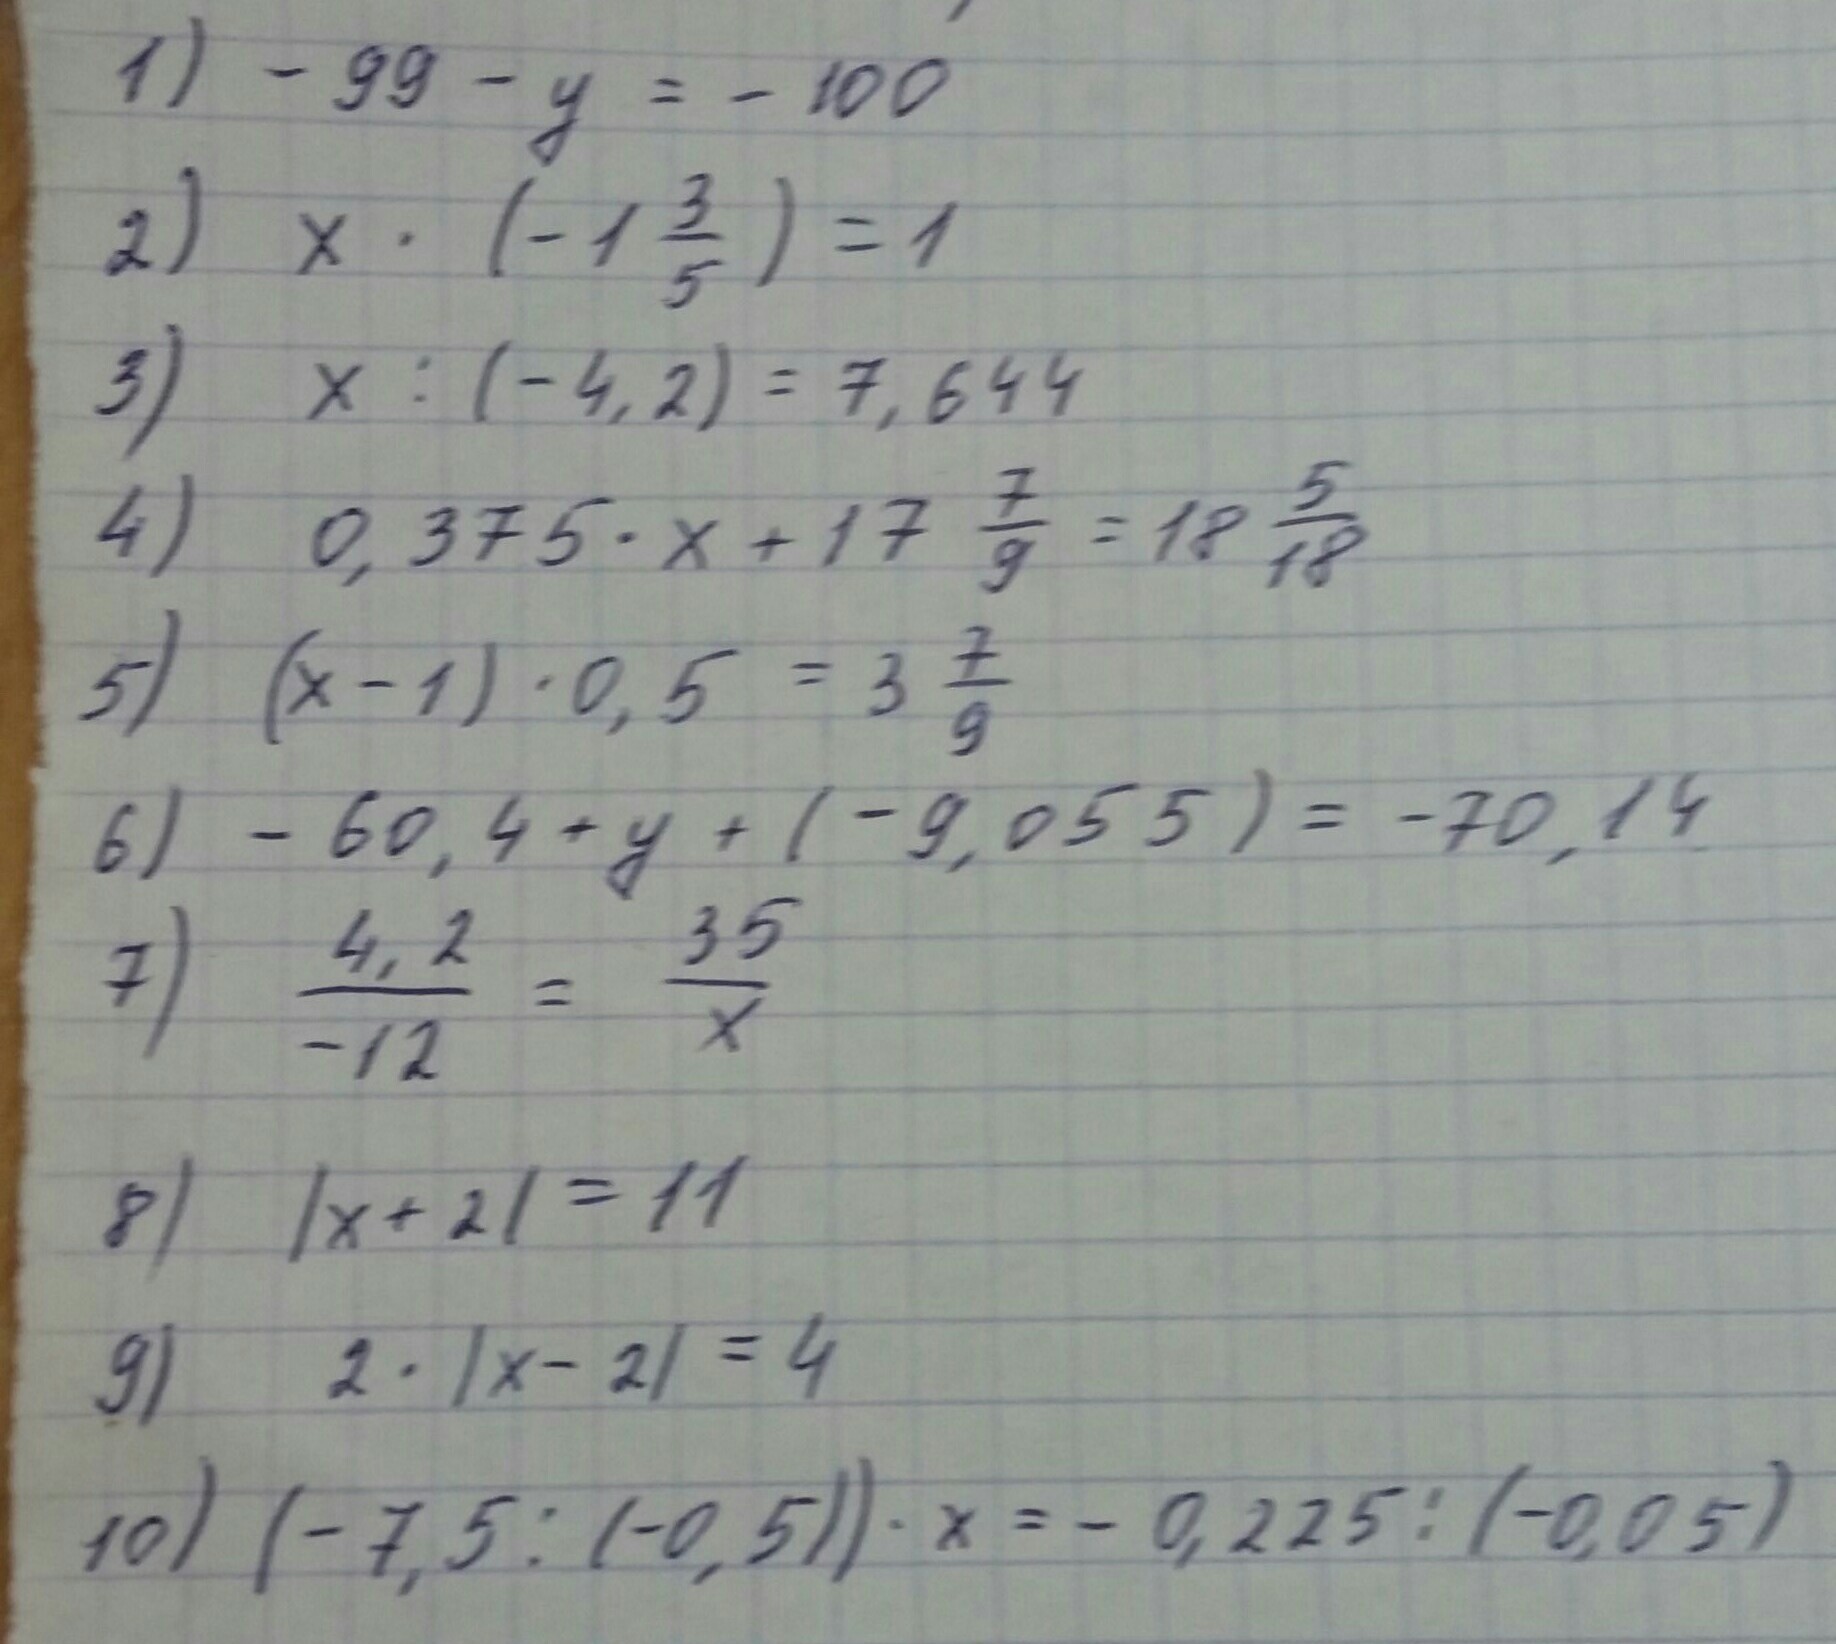 1) - 99 - y = - 100
2) x · (-1 3/5) = 1
3) x : (-4,2) = 7,644
4) 0,375 · x + 17 7/9 = 18 5/18
5) (x - 1) · 0,5 = 3 7/9
6) - 60,4 + y + (-9,055) = -70,14
7) 4,2/-12 = 35/x
8) |x + 2| = 11
9) 2 · |x - 2| = 4
10) (-7,5 : (-0,5)) · x = - 0,225 : (-0,05)